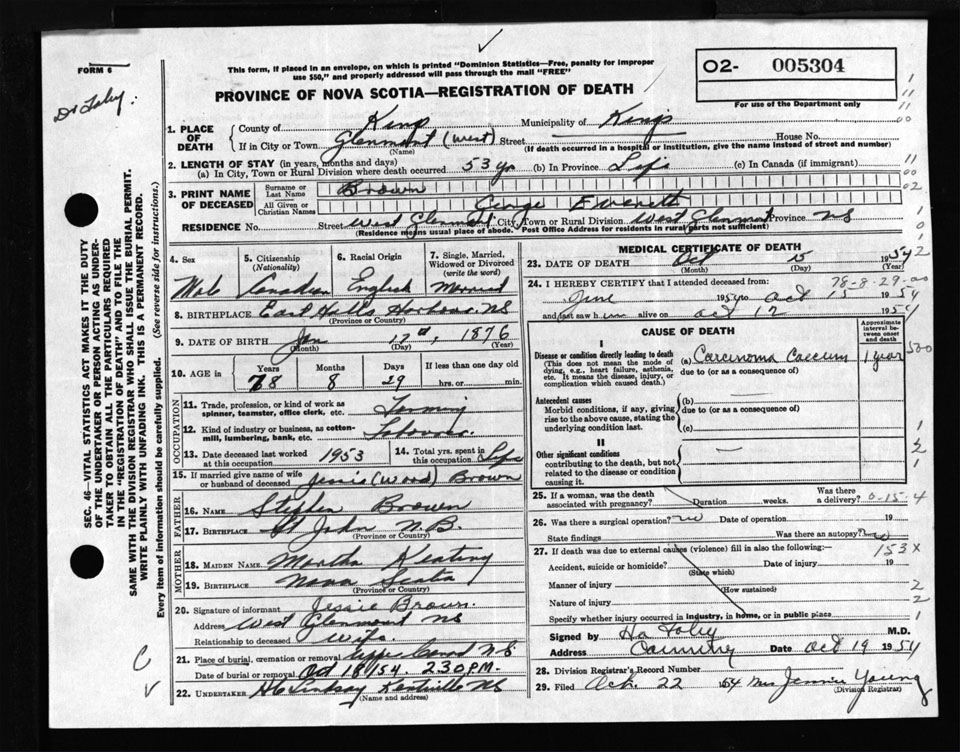 FORM 6
Dr Foley.
This form, if placed in an envelope, on which is printed "Dominion Statistics—Free, penalty for improper
use $50," and properly addressed will pass through the mail "FREE"
PROVINCE OF NOVA SCOTIA—REGISTRATION OF DEATH
O2- 005304
For use of the Department only
1. PLACE OF DEATH
County of King Municipality of Kings
If in City or Town Glenmont (West) Street House No.
(Name) (If death occurred in a hospital or institution, give the name instead of street and number)
2. LENGTH OF STAY (in years, months and days)
(a) In City, Town or Rural Division where death occurred 53 yr (b) In Province Life (c) In Canada (if immigrant)
3. PRINT NAME OF DECEASED
Surname or Last Name Brown
All Given or Christian Names George Everett
RESIDENCE No. Street West Glenmont City, Town or Rural Division West Glenmont Province NS
(Residence means usual place of abode. Post Office Address for residents in rural parts not sufficient)
4. Sex
Male
5. Citizenship
(Nationality)
Canadian
6. Racial Origin
English
7. Single, Married,
Widowed or Divorced
(write the word)
Married
8. BIRTHPLACE East Halls Harbour NS
(Province or Country)
9. DATE OF BIRTH Jan 17th, 1876
(Month) (Day) (Year)
10. AGE in
Years Months Days If less than one day old
78 8 29 hrs. or min.
OCCUPATION
11. Trade, profession, or kind of work as
spinner, teamster, office clerk, etc. Farming
12. Kind of industry or business, as cotton-
mill, lumbering, bank, etc.
13. Date deceased last worked
at this occupation 1953
14. Total yrs. spent in
this occupation Life
15. If married give name of wife
or husband of deceased Jessie (Wood) Brown
FATHER
16. NAME Stephen Brown
17. BIRTHPLACE St John N.B.
(Province or Country)
MOTHER
18. MAIDEN NAME Martha Keating
19. BIRTHPLACE Nova Scotia
(Province or Country)
20. Signature of informant Jessie Brown.
Address West Glenmont NS
Relationship to deceased Wife.
21. Place of burial, cremation or removal Upper Canard NS
Date of burial or removal Oct 18/54. 2.30 P.M.
22. UNDERTAKER H C Lindsay Kentville NS
(Name and address)
MEDICAL CERTIFICATE OF DEATH
23. DATE OF DEATH Oct 15 1954
(Month) (Day) (Year)
24. I HEREBY CERTIFY that I attended deceased from: 78-8-29-00
June 1954 to Oct 15 1954
and last saw him alive on Oct 12 195
CAUSE OF DEATH
Approximate interval between onset and death
I
Disease or condition directly leading to death
(This does not mean the mode of
dying, e.g., heart failure, asthenia,
etc. It means the disease, injury, or
complication which caused death.)
(a) Carcinoma Caecum 1 year
due to (or as a consequence of)
Antecedent causes
Morbid conditions, if any, giving
rise to the above cause, stating the
underlying condition last.
(b)
due to (or as a consequence of)
(c)
II
Other significant conditions
contributing to the death, but not
related to the disease or condition
causing it.
25. If a woman, was the death
associated with pregnancy? Duration weeks. Was there
a delivery? 0-15-4
26. Was there a surgical operation? no Date of operation 19
State findings Was there an autopsy? no
27. If death was due to external causes (violence) fill in also the following:— 153X
Accident, suicide or homicide? Date of injury 19
(State which)
Manner of injury
(How sustained)
Nature of injury
Specify whether injury occurred in industry, in home, or in public place
Signed by Foley M.D.
Address Canning Date Oct 19 1954
28. Division Registrar's Record Number
29. Filed Oct. 22 1954 Mrs Jennie Young
(Division Registrar)
SEC. 46—VITAL STATISTICS ACT MAKES IT THE DUTY
OF THE UNDERTAKER OR PERSON ACTING AS UNDER-
TAKER TO OBTAIN ALL THE PARTICULARS REQUIRED
IN THE "REGISTRATION OF DEATH" AND TO FILE THE
SAME WITH THE DIVISION REGISTRAR WHO SHALL ISSUE THE BURIAL PERMIT.
WRITE PLAINLY WITH UNFADING INK. THIS IS A PERMANENT RECORD.
Every item of information should be carefully supplied. (See reverse side for instructions.)